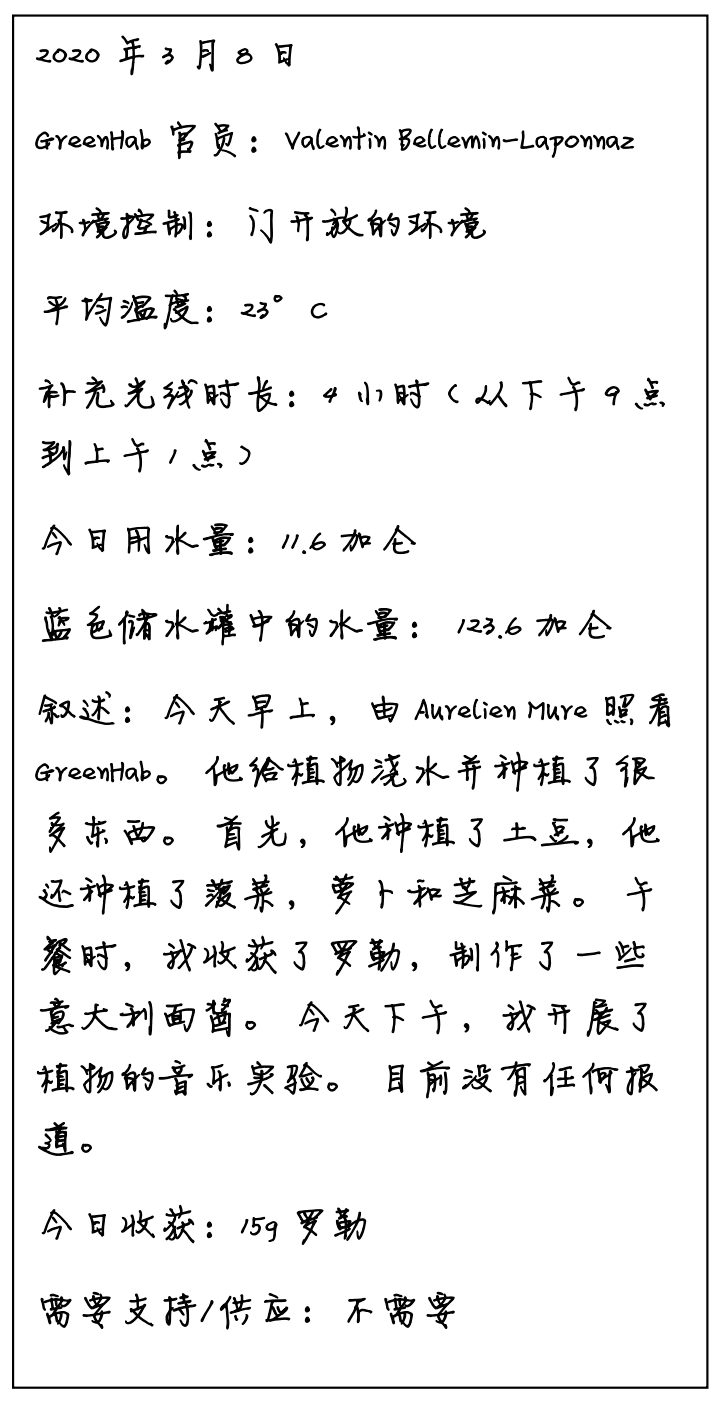 2020 年 3 月 8 日
GreenHab 官员： Valentin Bellemin-Laponnaz
环境控制： 门开放的环境
平均温度：23° C
补充光线时长：4 小时（从下午 9 点
到上午 1 点）
今日用水量：11.6 加仑
蓝色储水罐中的水量： 123.6 加仑
叙述：今天早上，由 Aurelien Mure 照看
GreenHab。 他给植物浇水并种植了很
多东西。 首先，他种植了土豆，他
还种植了菠菜，萝卜和芝麻菜。 午
餐时，我收获了罗勒，制作了一些
意大利面酱。 今天下午，我开展了
植物的音乐实验。 目前没有任何报
道。
今日收获：15g 罗勒
需要支持/供应： 不需要